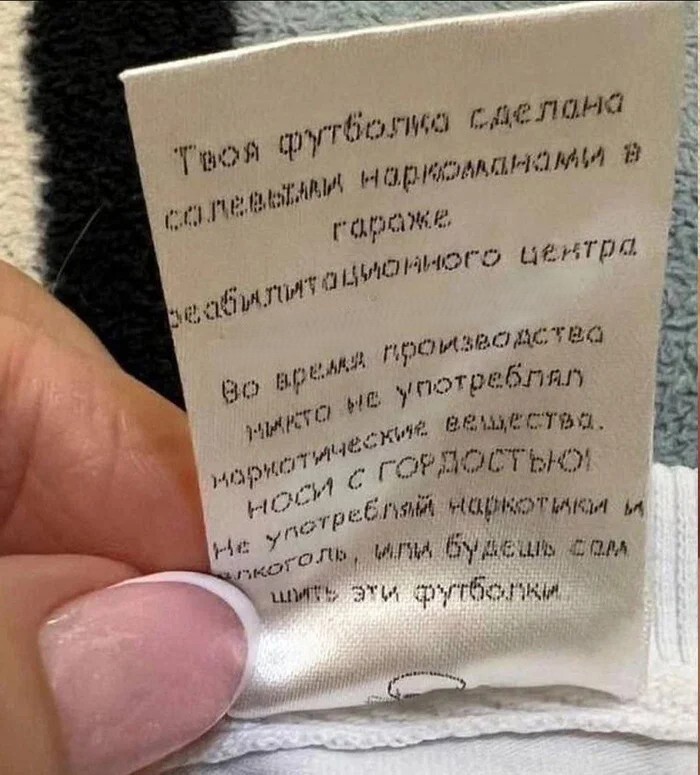 Твоя футболка сделана
солевыми наркоманами в
гараже
реабилитационного центра
Во время производства
никто не употреблял
наркотические вещества.
НОСИ С ГОРДОСТЬЮ!
Не употребляй наркотики и
алкоголь, или будешь сам
шить эти футболки